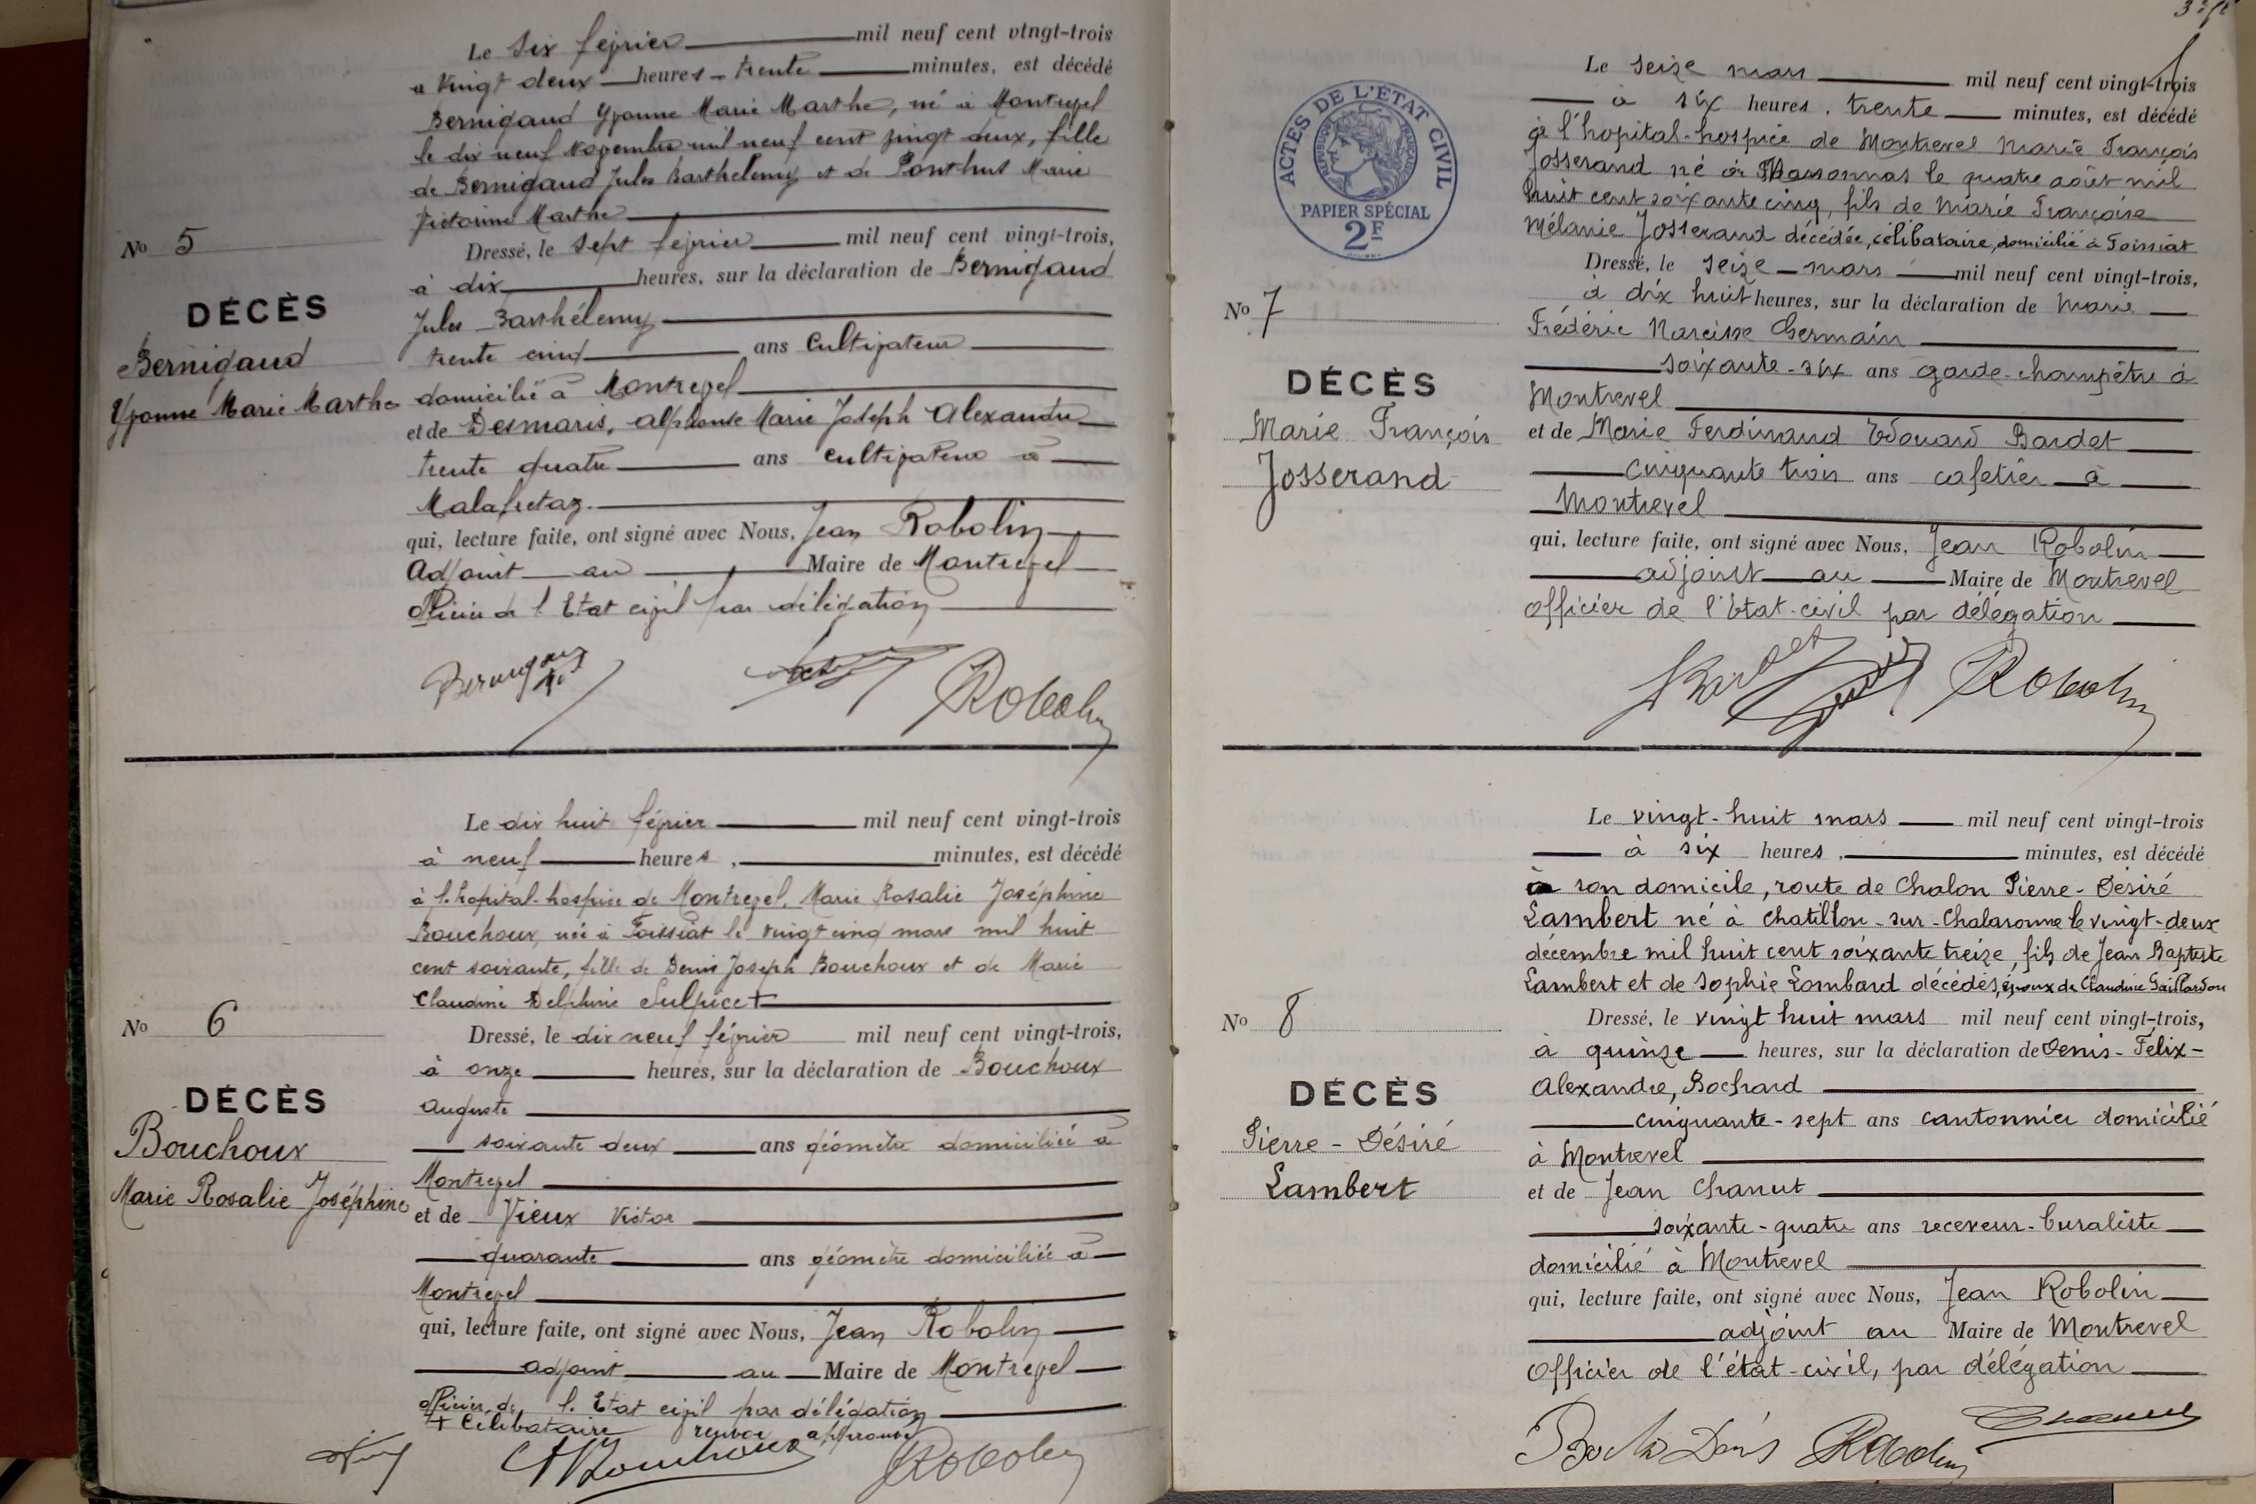 Le six février mil neuf cent vingt-trois
a vingt deux heures trente minutes, est décédé
Bernigaud Yvonne Marie Marthe, né à Montrevel
le dix neuf Novembre mil neuf cent vingt deux, fille
de Bernigaud Jules Barthélemy et de Ponthus Marie
Victorine Marthe
No 5
DÉCÈS
Bernigaud
Yvonne Marie Marthe
Dressé, le sept février mil neuf cent vingt-trois,
à dix heures, sur la déclaration de Bernigaud
Jules Barthélemy
trente cinq ans Cultivateur
domicilié à Montrevel
et de Desmaris, Alphonse Marie Joseph Alexandre
trente quatre ans cultivateur à
Malafretaz.
qui, lecture faite, ont signé avec Nous, Jean Robolin
Adjoint au Maire de Montrevel
officier de l'Etat civil par délégation
Bernigaud
Robolin
Le dix huit février mil neuf cent vingt-trois
à neuf heures, minutes, est décédé
à l'hopital-hospice de Montrevel, Marie Rosalie Joséphine
Bouchoux, née à Foissiat le vingt cinq mars mil huit
cent soixante, fille de Denis Joseph Bouchoux et de Marie
Claudine Delphine Sulpice +
No 6
DÉCÈS
Bouchoux
Marie Rosalie Joséphine
Dressé, le dix neuf février mil neuf cent vingt-trois,
à onze heures, sur la déclaration de Bouchoux
Auguste
soixante deux ans géomètre domiciliée à
Montrevel
et de Vieux Victor
quarante ans géomètre domiciliée à
Montrevel
qui, lecture faite, ont signé avec Nous, Jean Robolin
adjoint au Maire de Montrevel
officier de l'Etat civil par délégation
+ Célibataire renvoi approuvé
Bouchoux
Robolin
ACTES DE L'ÉTAT CIVIL
RÉPUBLIQUE FRANÇAISE
PAPIER SPÉCIAL
2F
Le seize mars mil neuf cent vingt-trois
à six heures, trente minutes, est décédé
à l'hopital-hospice de Montrevel Marie François
Josserand né à Marsonnas le quatre août mil
huit cent soixante cinq, fils de Marie Françoise
Mélanie Josserand décédée, célibataire, domicilié à Foissiat
No 7
DÉCÈS
Marie François
Josserand
Dressé, le seize mars mil neuf cent vingt-trois,
à dix huit heures, sur la déclaration de Marie
Frédéric Narcisse Germain
soixante-six ans garde-champêtre à
Montrevel
et de Marie Ferdinand Edouard Bardet
cinquante trois ans cafetier à
Montrevel
qui, lecture faite, ont signé avec Nous, Jean Robolin
adjoint au Maire de Montrevel
Officier de l'Etat-civil par délégation
Bardet
Robolin
Le vingt-huit mars mil neuf cent vingt-trois
à six heures, minutes, est décédé
à son domicile, route de Chalon Pierre-Désiré
Lambert né à Chatillon-sur-Chalaronne le vingt-deux
décembre mil huit cent soixante treize, fils de Jean Baptiste
Lambert et de Sophie Lombard décédés, époux de Claudine Gaillardon
No 8
DÉCÈS
Pierre-Désiré
Lambert
Dressé, le vingt huit mars mil neuf cent vingt-trois,
à quinze heures, sur la déclaration de Denis-Félix-
Alexandre, Bochard
cinquante-sept ans cantonnier domicilié
à Montrevel
et de Jean Chanut
soixante-quatre ans receveur-buraliste
domicilié à Montrevel
qui, lecture faite, ont signé avec Nous, Jean Robolin
adjoint au Maire de Montrevel
Officier de l'état-civil, par délégation
Robolin